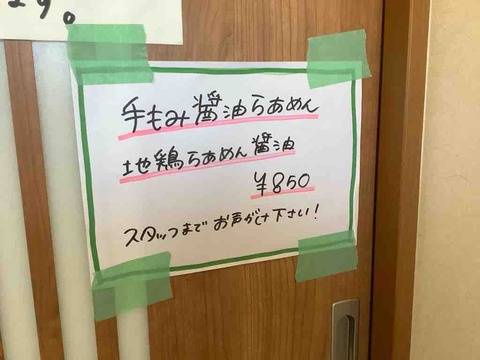 ます。
手もみ醤油らあめん
地鶏らあめん醤油
¥850
スタッフまでお声がけ下さい！